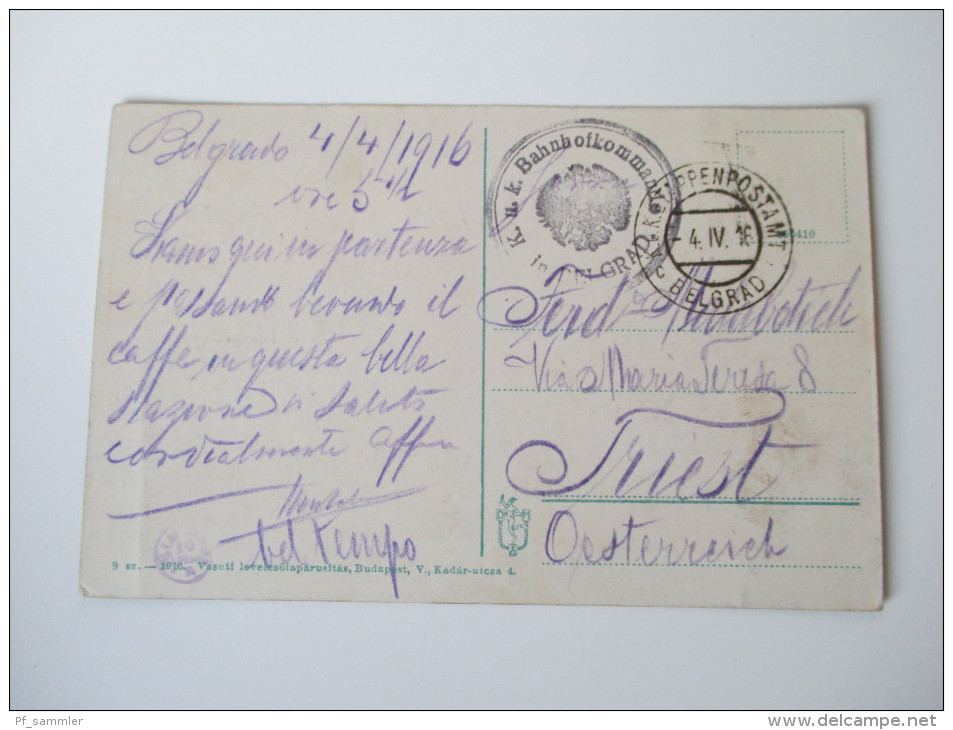 Belgrado 4/4/1916
ore 5 1/2
Siamo qui in partenza
e passando bevendo il
caffe in questa bella
stazione vi saluto
cordialmente affmo
bel tempo
9 sz. — 1916. Vasuti levelezőlapárusitás, Budapest, V., Kádár-utcza 4.
K. u. k. Bahnhofkommando
in BELGRAD
K.u.K. ETAPPENPOSTAMT
- 4. IV. 16
c BELGRAD
Ferd
Via Maria Teresa 8
Triest
Oesterreich
Pf_sammler
www.delcampe.net